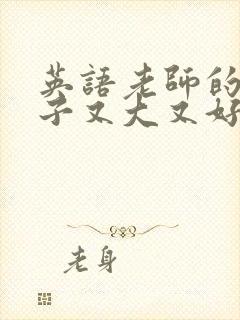 英語老師的
子又大又好
老身